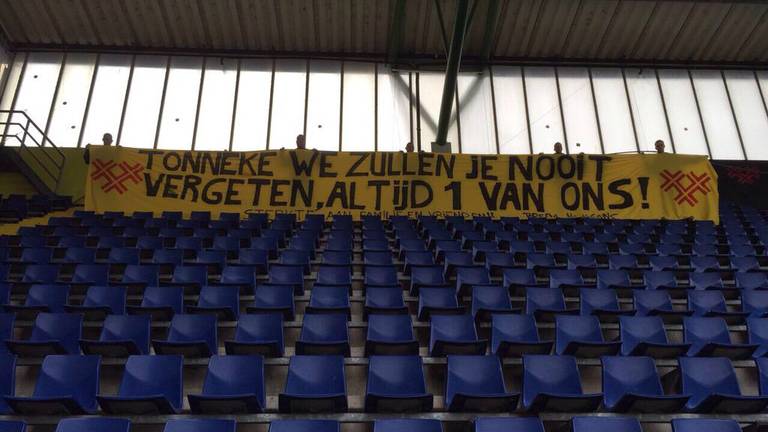 TONNEKE WE ZULLEN JE NOOIT
VERGETEN, ALTIJD 1 VAN ONS!
STERKTE AAN FAMILIE EN VRIENDEN!!